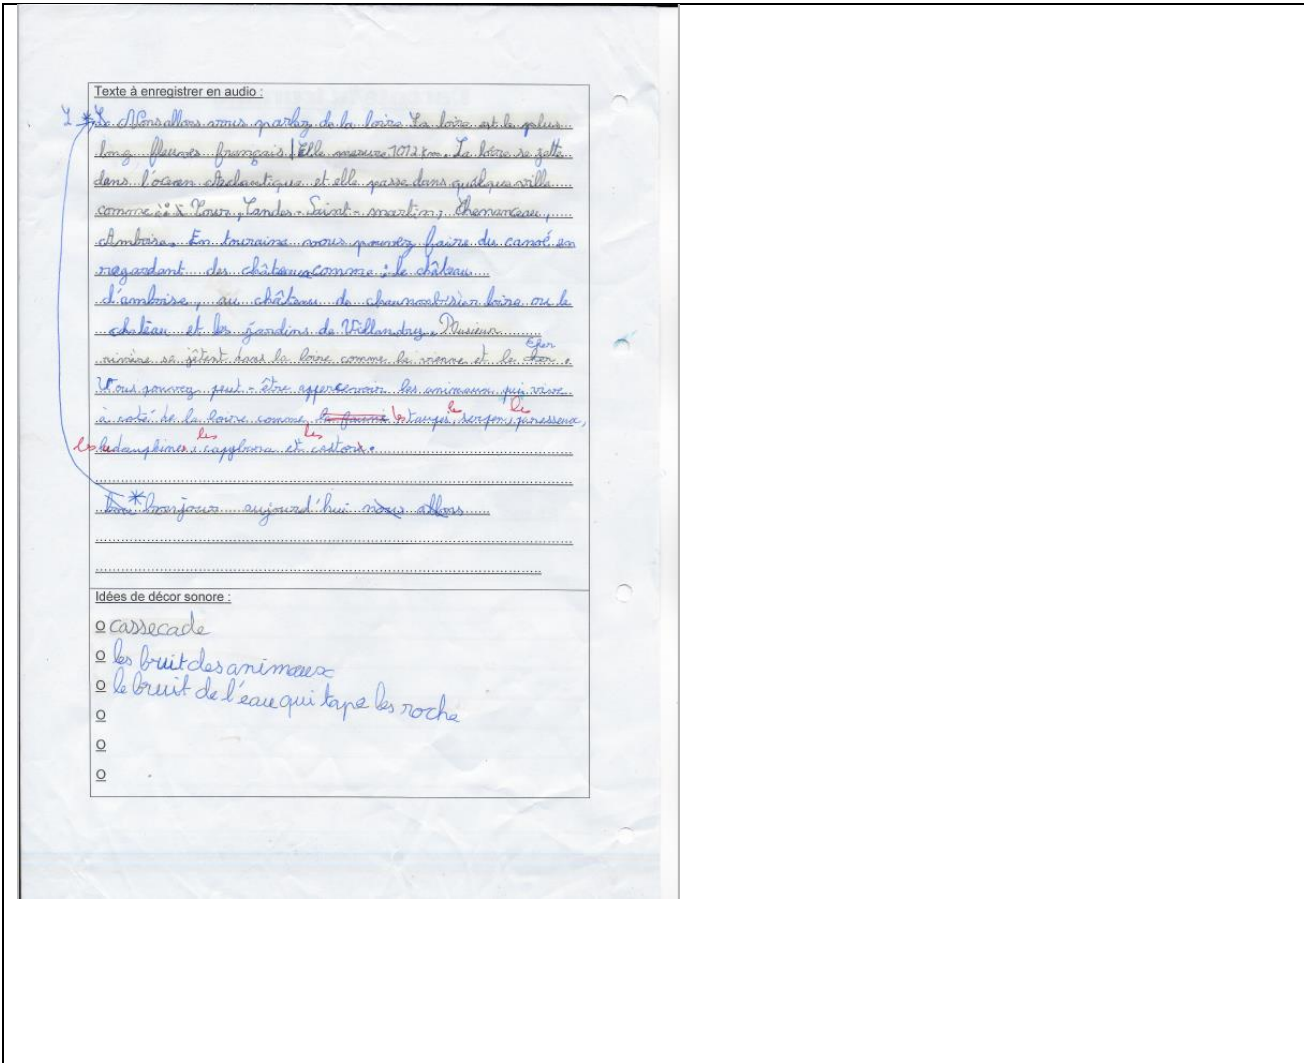 Texte à enregistrer en audio :
Nous allons vous parlez de la loire La loire est le plus
long fleuves français Elle mesure 1012 km. La loire se jette
dans l'océan et elle passe dans quelque ville
comme : Tours, Candes-Saint-martin, Chenanceau,
Amboise. En touraine vous pouvez faire du canoé en
regardant des châteaux comme : le château
d'amboise, au château de loire ou le
château et les jardins de Villandry. Plusieur
rivière se jêtent dans la loire comme la vienne et le cher.
Vous pouvez peut-être appercevoir les animaux qui vive
à coté de la loire comme la faune les taupes, le serpen, les
les les capybara et les castors.
* bonjour aujourd'hui nous allons
Idées de décor sonore :
o cassecade
o les bruit des animaux
o le bruit de l'eau qui tape les roche
o
o
o